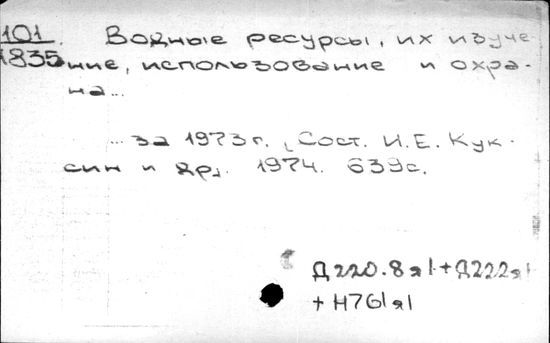 101 Водные ресурсы, их изуче-
1835 ние, использование и охра-
на...
... за 1973 г. Сост. И.Е. Кук-
син и др. 1974. 639с.
Д220.8я1+Д222я1
+Н761я1